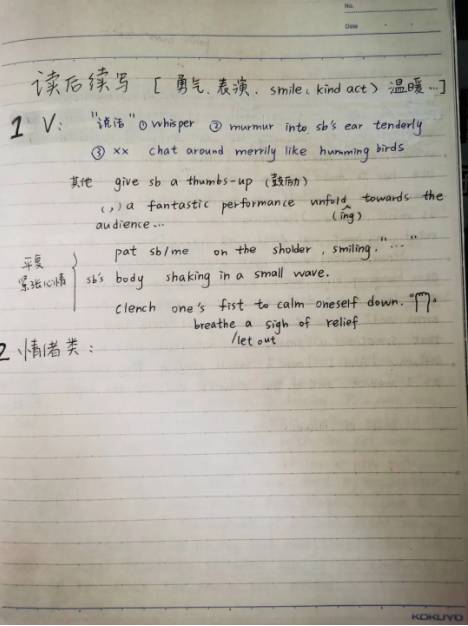 No.
Date
读后续写 [ 勇气、表演、smile、kind act > 温暖…]
1 V: "说话" ① whisper ② murmur into sb's ear tenderly
③ xx chat around merrily like humming birds
其他 give sb a thumbs-up (鼓励)
(,) a fantastic performance unfold ^ towards the
(ing)
audience...
平复
紧张心情
pat sb/me on the sholder, smiling. "……"
sb's body shaking in a small wave.
clench one's fist to calm oneself down.
breathe a sigh of relief
/let out
2 情绪类:
KOKUYO